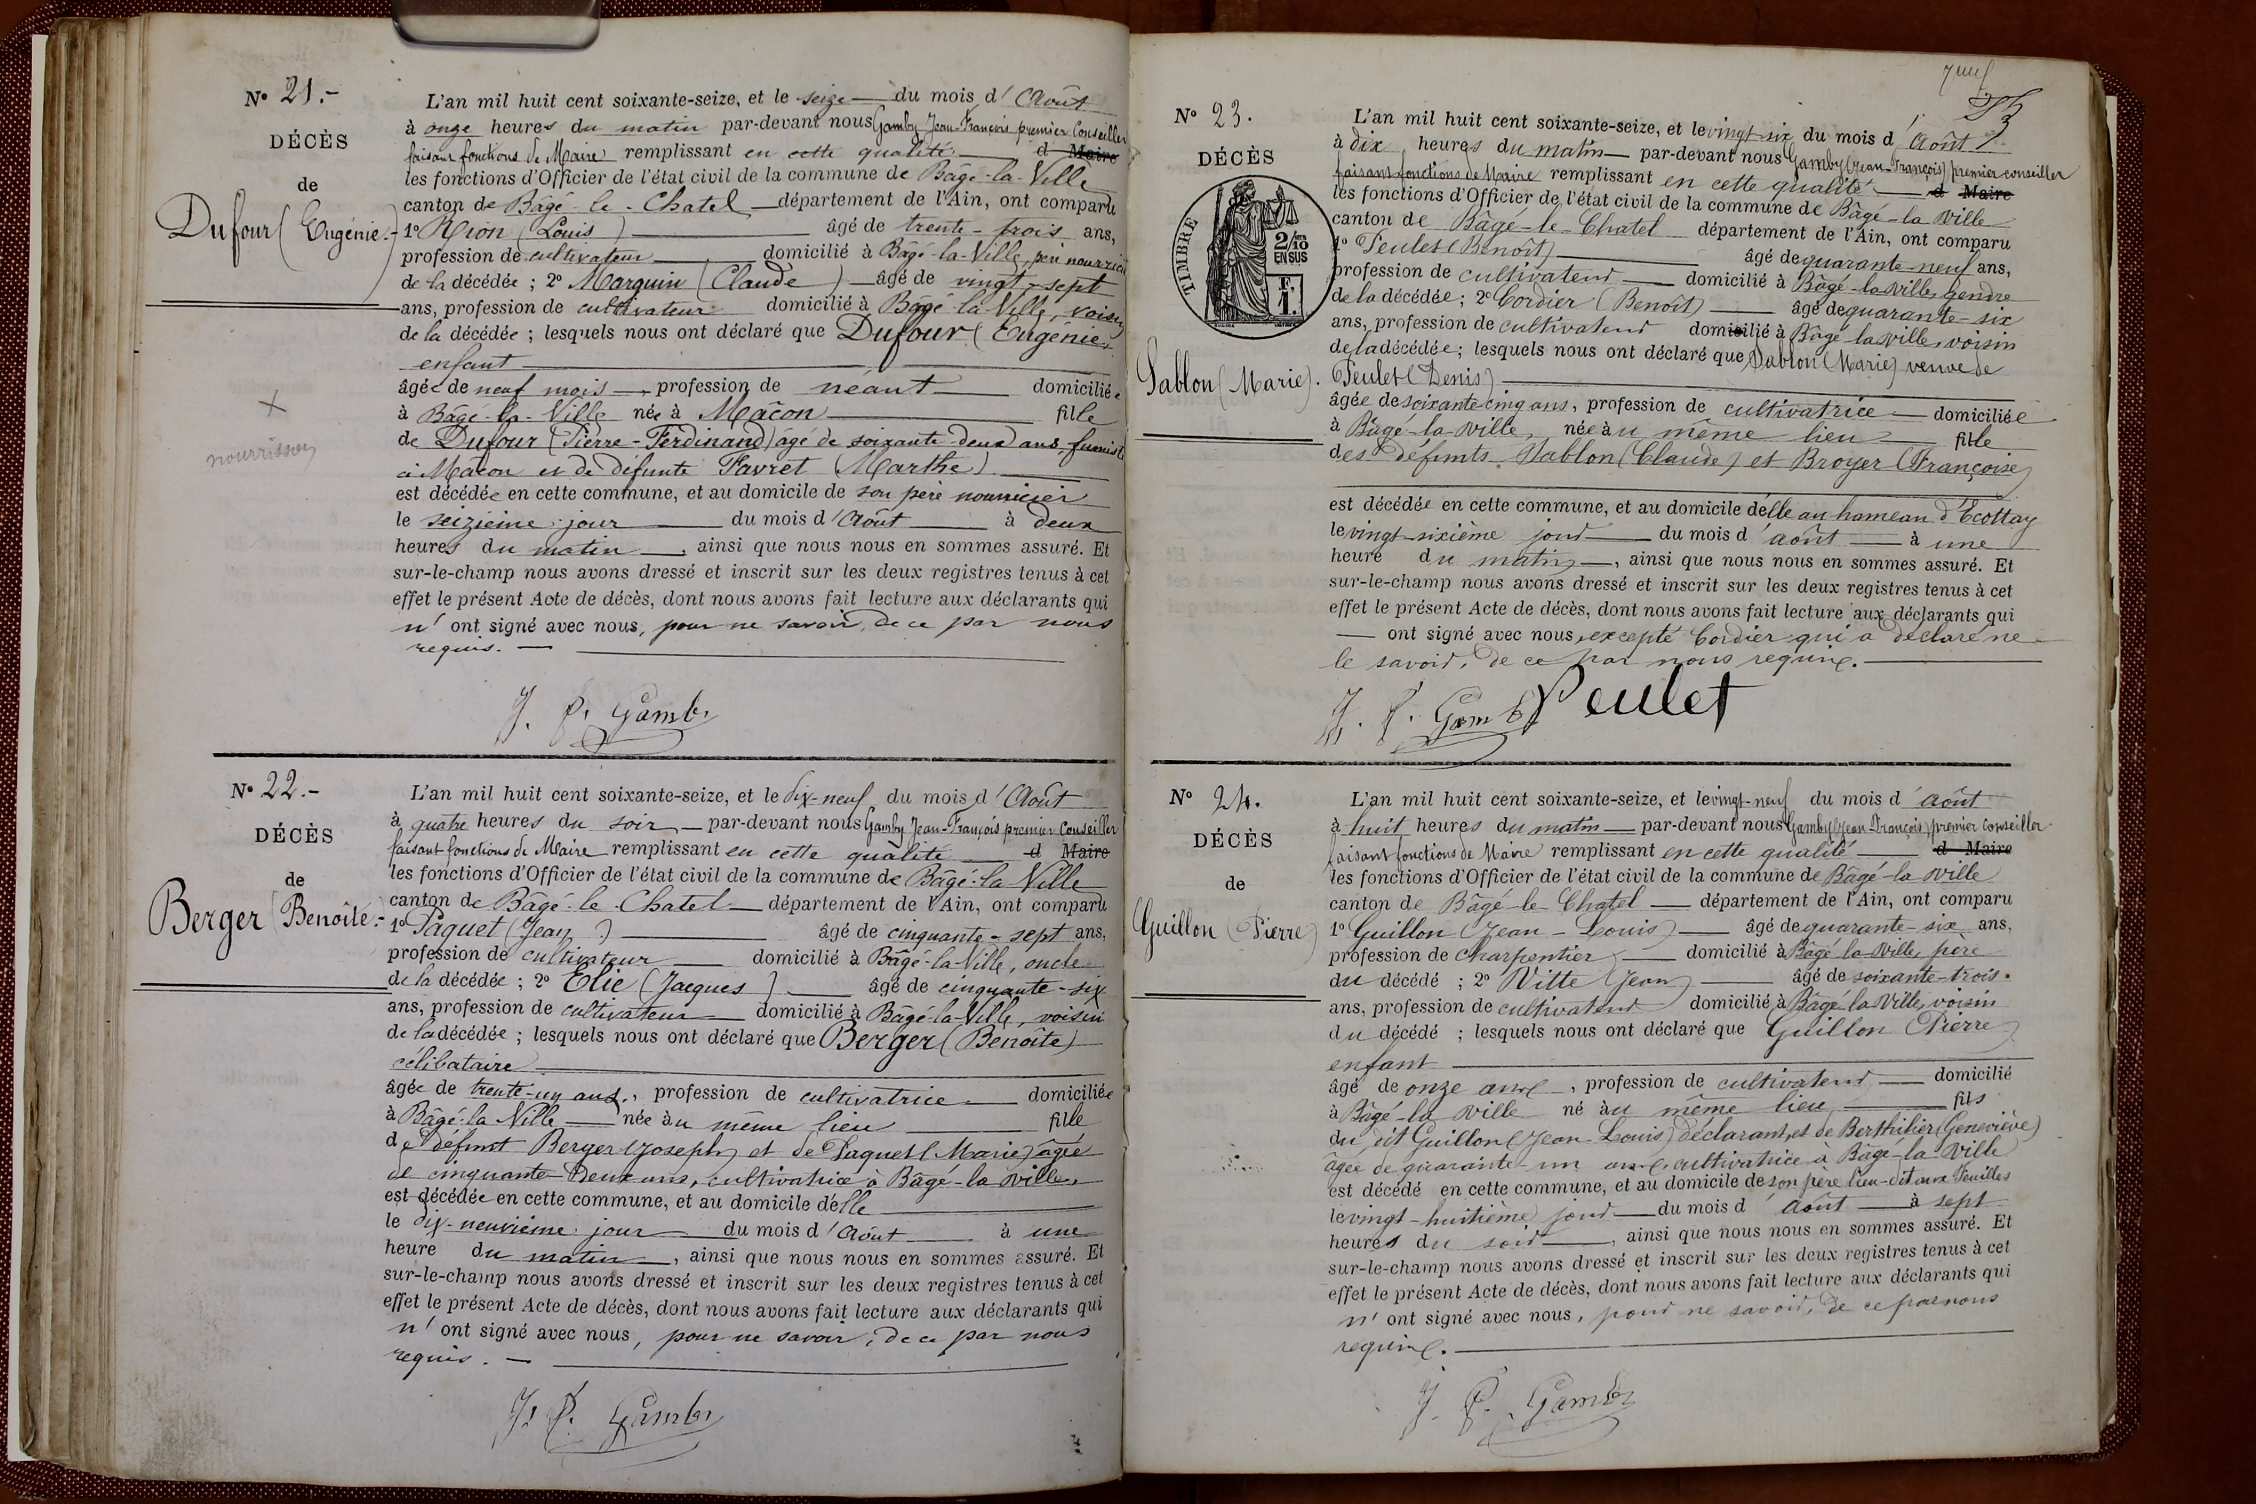 N° 21.-
DÉCÈS
de
Dufour (Eugénie.-
nourrisson
L'an mil huit cent soixante-seize, et le seize du mois d'Août
à onze heures du matin par-devant nous Gamby Jean-François premier Conseiller
faisant fonctions de Maire remplissant en cette qualité d Maire
les fonctions d'Officier de l'état civil de la commune de Bâgé-la-Ville
canton de Bâgé-le-Chatel département de l'Ain, ont comparu
1° (Louis) âgé de trente-trois ans,
profession de cultivateur domicilié à Bâgé-la-Ville, père nourricier
de la décédée ; 2° Marguin (Claude) âgé de vingt-sept
ans, profession de cultivateur domicilié à Bâgé-la-Ville, voisin
de la décédée ; lesquels nous ont déclaré que Dufour (Eugénie)
enfant
âgée de neuf mois, profession de néant domiciliée
à Bâgé-la-Ville née à Mâcon fille
de Dufour (Pierre-Ferdinand) âgé de soixante-deux ans, fumiste
à Macon et de défunte Favret (Marthe)
est décédée en cette commune, et au domicile de son père nourricier
le seizième jour du mois d'Août à deux
heures du matin, ainsi que nous nous en sommes assuré. Et
sur-le-champ nous avons dressé et inscrit sur les deux registres tenus à cet
effet le présent Acte de décès, dont nous avons fait lecture aux déclarants qui
n'ont signé avec nous, pour ne savoir, de ce par nous
requis.
J. F. Gamby
N° 22.-
DÉCÈS
de
Berger (Benoîte.-
L'an mil huit cent soixante-seize, et le dix-neuf du mois d'Août
à quatre heures du soir par-devant nous Gamby Jean-François premier Conseiller
faisant fonctions de Maire remplissant en cette qualité d Maire
les fonctions d'Officier de l'état civil de la commune de Bâgé-la Ville
canton de Bâgé-le-Chatel département de l'Ain, ont comparu
1° Paquet (Jean) âgé de cinquante-sept ans,
profession de cultivateur domicilié à Bâgé-la-Ville, oncle
de la décédée ; 2° Elie (Jacques) âgé de cinquante-six
ans, profession de cultivateur domicilié à Bâgé-la-Ville, voisin
de la décédée ; lesquels nous ont déclaré que Berger (Benoîte)
célibataire
âgée de trente-un ans, profession de cultivatrice domiciliée
à Bâgé-la Ville née au même lieu fille
de défunt Berger (Joseph) et de Paquet (Marie) âgée
de cinquante-deux ans, cultivatrice à Bâgé-la ville,
est décédée en cette commune, et au domicile d'elle
le dix-neuvième jour du mois d'Août à une
heure du matin, ainsi que nous nous en sommes assuré. Et
sur-le-champ nous avons dressé et inscrit sur les deux registres tenus à cet
effet le présent Acte de décès, dont nous avons fait lecture aux déclarants qui
n'ont signé avec nous, pour ne savoir, de ce par nous
requis.
J. F. Gamby
N° 23.
DÉCÈS
TIMBRE
2/10
EN SUS
F.
1.
Sablon (Marie).
L'an mil huit cent soixante-seize, et le vingt-six du mois d'août
à dix heures du matin par-devant nous Gamby (Jean-François) premier conseiller
faisant fonctions de Maire remplissant en cette qualité d Maire
les fonctions d'Officier de l'état civil de la commune de Bâgé-la ville
canton de Bâgé-le-Chatel département de l'Ain, ont comparu
1° Peulet (Benoît) âgé de quarante-neuf ans,
profession de cultivateur domicilié à Bâgé-la ville, gendre
de la décédée ; 2° Cordier (Benoît) âgé de quarante-six
ans, profession de cultivateur domicilié à Bâgé-la ville, voisin
de la décédée ; lesquels nous ont déclaré que Sablon (Marie) veuve de
Peulet (Denis)
âgée de soixante cinq ans, profession de cultivatrice domiciliée
à Bâgé-la-ville, née au même lieu fille
des défunts Sablon (Claude) et Broyer (Françoise)
est décédée en cette commune, et au domicile d'elle au hameau d'Ecottay
le vingt-sixième jour du mois d'août à une
heure du matin, ainsi que nous nous en sommes assuré. Et
sur-le-champ nous avons dressé et inscrit sur les deux registres tenus à cet
effet le présent Acte de décès, dont nous avons fait lecture aux déclarants qui
ont signé avec nous, excepté Cordier qui a déclaré ne
le savoir, de ce par nous requis.
J. F. Gamby Peulet
N° 24.
DÉCÈS
de
Guillon (Pierre)
L'an mil huit cent soixante-seize, et le vingt-neuf du mois d'août
à huit heures du matin par-devant nous Gamby (Jean-François) premier conseiller
faisant fonctions de Maire remplissant en cette qualité d Maire
les fonctions d'Officier de l'état civil de la commune de Bâgé-la ville
canton de Bâgé-le Chatel département de l'Ain, ont comparu
1° Guillon (Jean-Louis) âgé de quarante-six ans,
profession de charpentier domicilié à Bâgé la ville, père
du décédé ; 2° Vitte (Jean) âgé de soixante-trois
ans, profession de cultivateur domicilié à Bâgé la Ville, voisin
du décédé ; lesquels nous ont déclaré que Guillon (Pierre)
enfant
âgé de onze ans, profession de cultivateur domicilié
à Bâgé-la ville né au même lieu fils
du dit Guillon (Jean-Louis) déclarant, et de Berthilier (Geneviève)
âgée de quarante-un ans, cultivatrice à Bâgé-la-Ville
est décédé en cette commune, et au domicile de son père lieu-dit aux
le vingt-huitième jour du mois d'août à sept
heures du soir, ainsi que nous nous en sommes assuré. Et
sur-le-champ nous avons dressé et inscrit sur les deux registres tenus à cet
effet le présent Acte de décès, dont nous avons fait lecture aux déclarants qui
n'ont signé avec nous, pour ne savoir, de ce par nous
requis.
J. F. Gamby